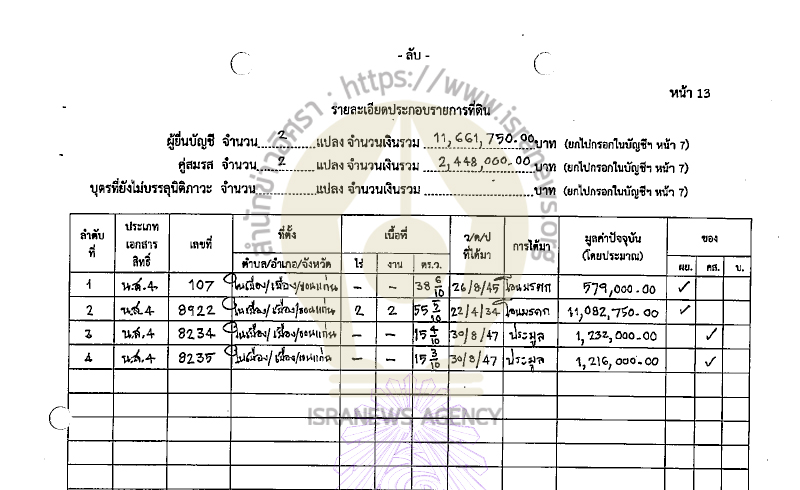 - ลับ -
หน้า 13
รายละเอียดประกอบรายการที่ดิน
ผู้ยื่นบัญชี จำนวน 2 แปลง จำนวนเงินรวม 11,661,750.00 บาท (ยกไปกรอกในบัญชีฯ หน้า 7)
คู่สมรส จำนวน 2 แปลง จำนวนเงินรวม 2,448,000.00 บาท (ยกไปกรอกในบัญชีฯ หน้า 7)
บุตรที่ยังไม่บรรลุนิติภาวะ จำนวน แปลง จำนวนเงินรวม บาท (ยกไปกรอกในบัญชีฯ หน้า 7)
ลำดับที่ ประเภทเอกสารสิทธิ์ เลขที่ ที่ตั้ง เนื้อที่ ว/ด/ป ที่ได้มา การได้มา มูลค่าปัจจุบัน (โดยประมาณ) ของ
ตำบล/อำเภอ/จังหวัด ไร่ งาน ตร.ว. ผย. คส. บ.
1 น.ส.4 107 ในเมือง/เมือง/ขอนแก่น - - 38 6/10 26/8/45 โอนมรดก 579,000.00 ✓
2 น.ส.4 8922 ในเมือง/เมือง/ขอนแก่น 2 2 55 5/10 22/4/34 โอนมรดก 11,082,750.00 ✓
3 น.ส.4 8234 ในเมือง/เมือง/ขอนแก่น - - 15 4/10 30/8/47 ประมูล 1,232,000.00 ✓
4 น.ส.4 8235 ในเมือง/เมือง/ขอนแก่น - - 15 3/10 30/8/47 ประมูล 1,216,000.00 ✓
สำนักข่าวอิศรา : https://www.isranews.org
ISRANEWS AGENCY